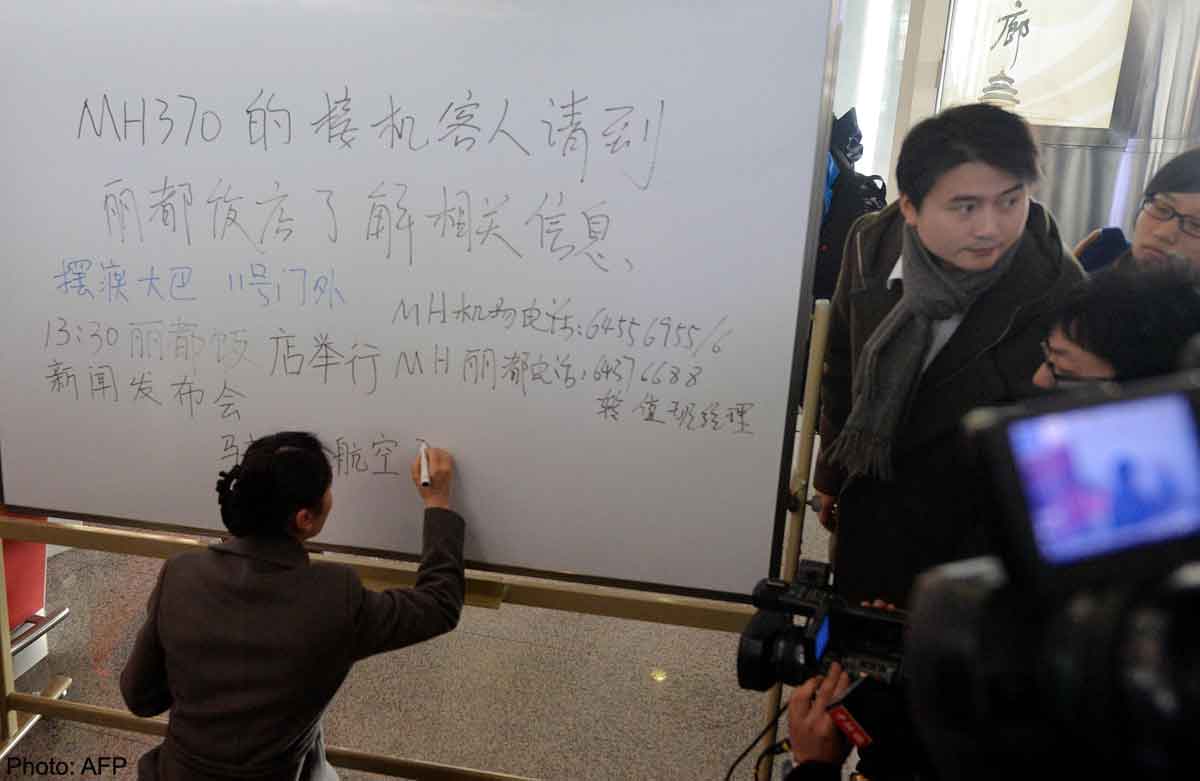 MH370的接机客人请到
丽都饭店了解相关信息、
摆渡大巴 11号门外
MH机场电话:64556955/6
13:30丽都饭店举行
新闻发布会
MH丽都电话:64376688
转值班经理
马 航空
廊
Photo: AFP